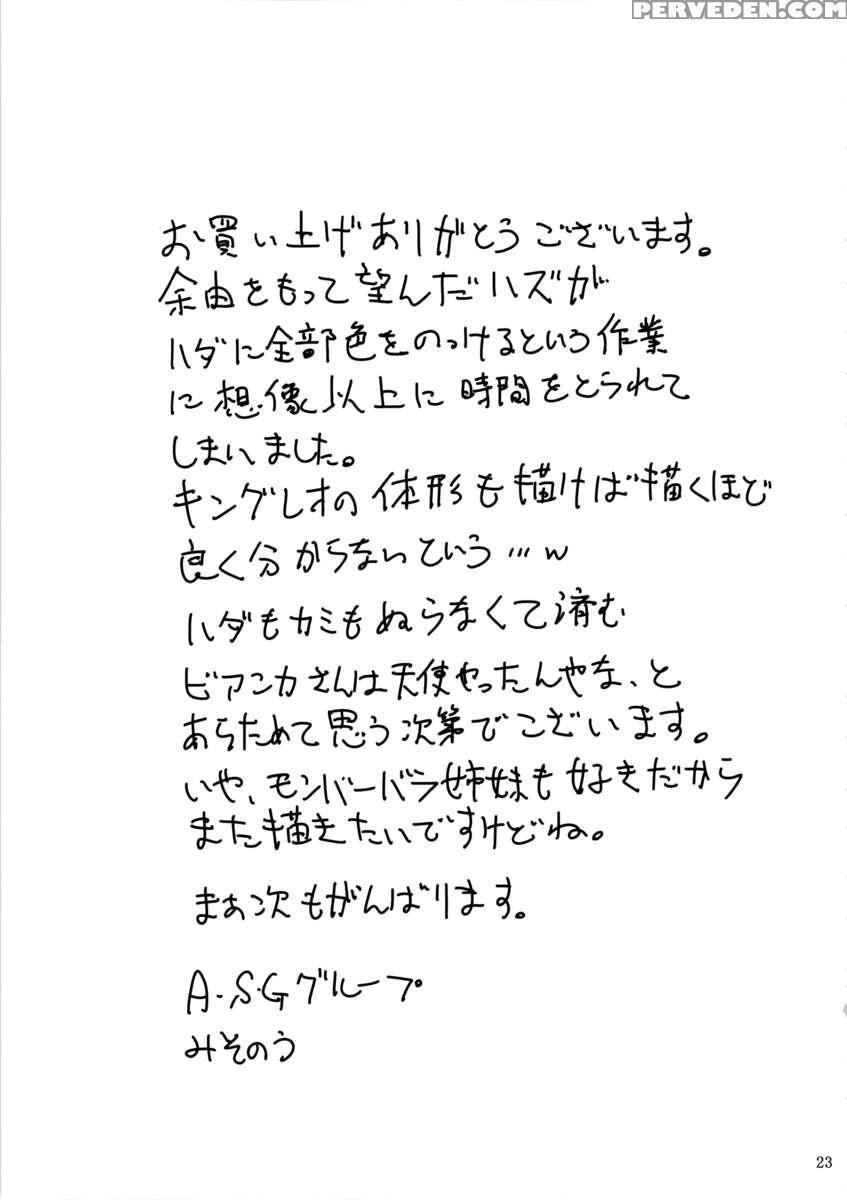 PERVEDEN.COM
お買い上げありがとうございます。
余由をもって望んだハズが
ハダに全部色をのっけるという作業
に想像以上に時間をとられて
しまいました。
キングレオの体形も描けば描くほど
良く分からないという…w
ハダもカミもぬらなくて済む
ビアンカさんは天使やったんやな、と
あらためて思う次第でございます。
いや、モンバーバラ姉妹も好きだから
また描きたいですけどね。
まぁ次もがんばります。
A・S・Gグループ
みそのう
23